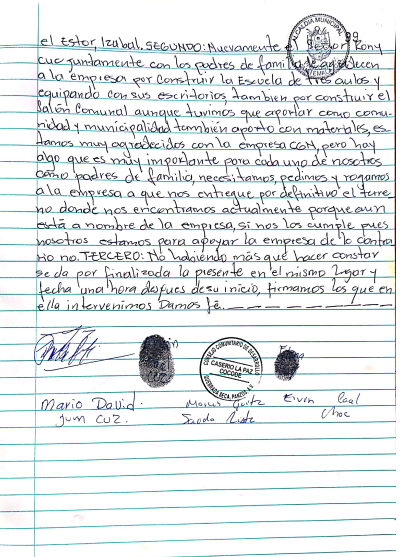 el Estor, Izabal. SEGUNDO: Nuevamente el Rony
cue juntamente con los padres de familia le agradecen
a la empresa por construir la Escuela de Tres aulas y
equipando con sus escritorios, tambien por construir el
Salón Comunal aunque tuvimos que aportar como comu-
nidad y municipalidad también aporto con materiales, es-
tamos muy agradecidos con la empresa CGN, pero hay
algo que es muy importante para cada uno de nosotros
como padres de familia, necesitamos, pedimos y rogamos
a la empresa a que nos entregue por definitivo el terre-
no donde nos encontramos actualmente porque aun
está a nombre de la empresa, si nos los cumple pues
nosotros estamos para apoyar la empresa de lo contra
rio no. TERCERO: No habiendo más que hacer constar
se da por finalizada la presente en el mismo lugar y
fecha una hora despues de su inicio, firmamos los que en
ella intervenimos Damos fé.
ALCALDIA MUNICIPAL
CONSEJO COMUNITARIO DE DESARROLLO
CASERIO LA PAZ
COCODE
Mario David
Jum CUZ.
Erwin Caal
Choc